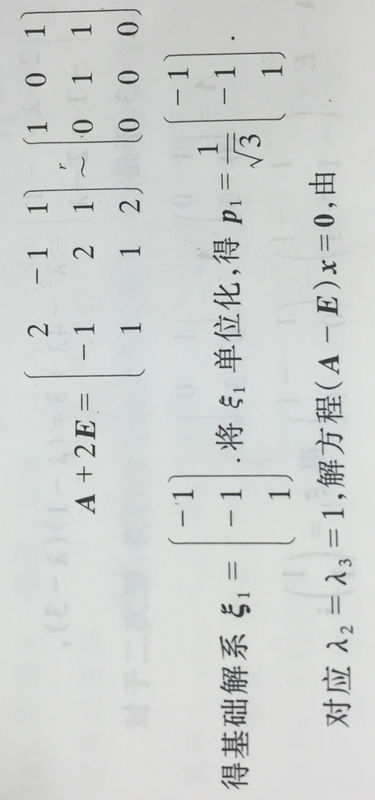 $A+2E=\begin{pmatrix}2&-1&1\\-1&2&1\\1&1&2\end{pmatrix}\overset{r}{\sim}\begin{pmatrix}1&0&1\\0&1&1\\0&0&0\end{pmatrix}$
得基础解系 $\xi_1=\begin{pmatrix}-1\\-1\\1\end{pmatrix}$.将 $\xi_1$ 单位化,得 $p_1=\frac{1}{\sqrt{3}}\begin{pmatrix}-1\\-1\\1\end{pmatrix}$.
对应 $\lambda_2=\lambda_3=1$,解方程$(A-E)x=0$,由